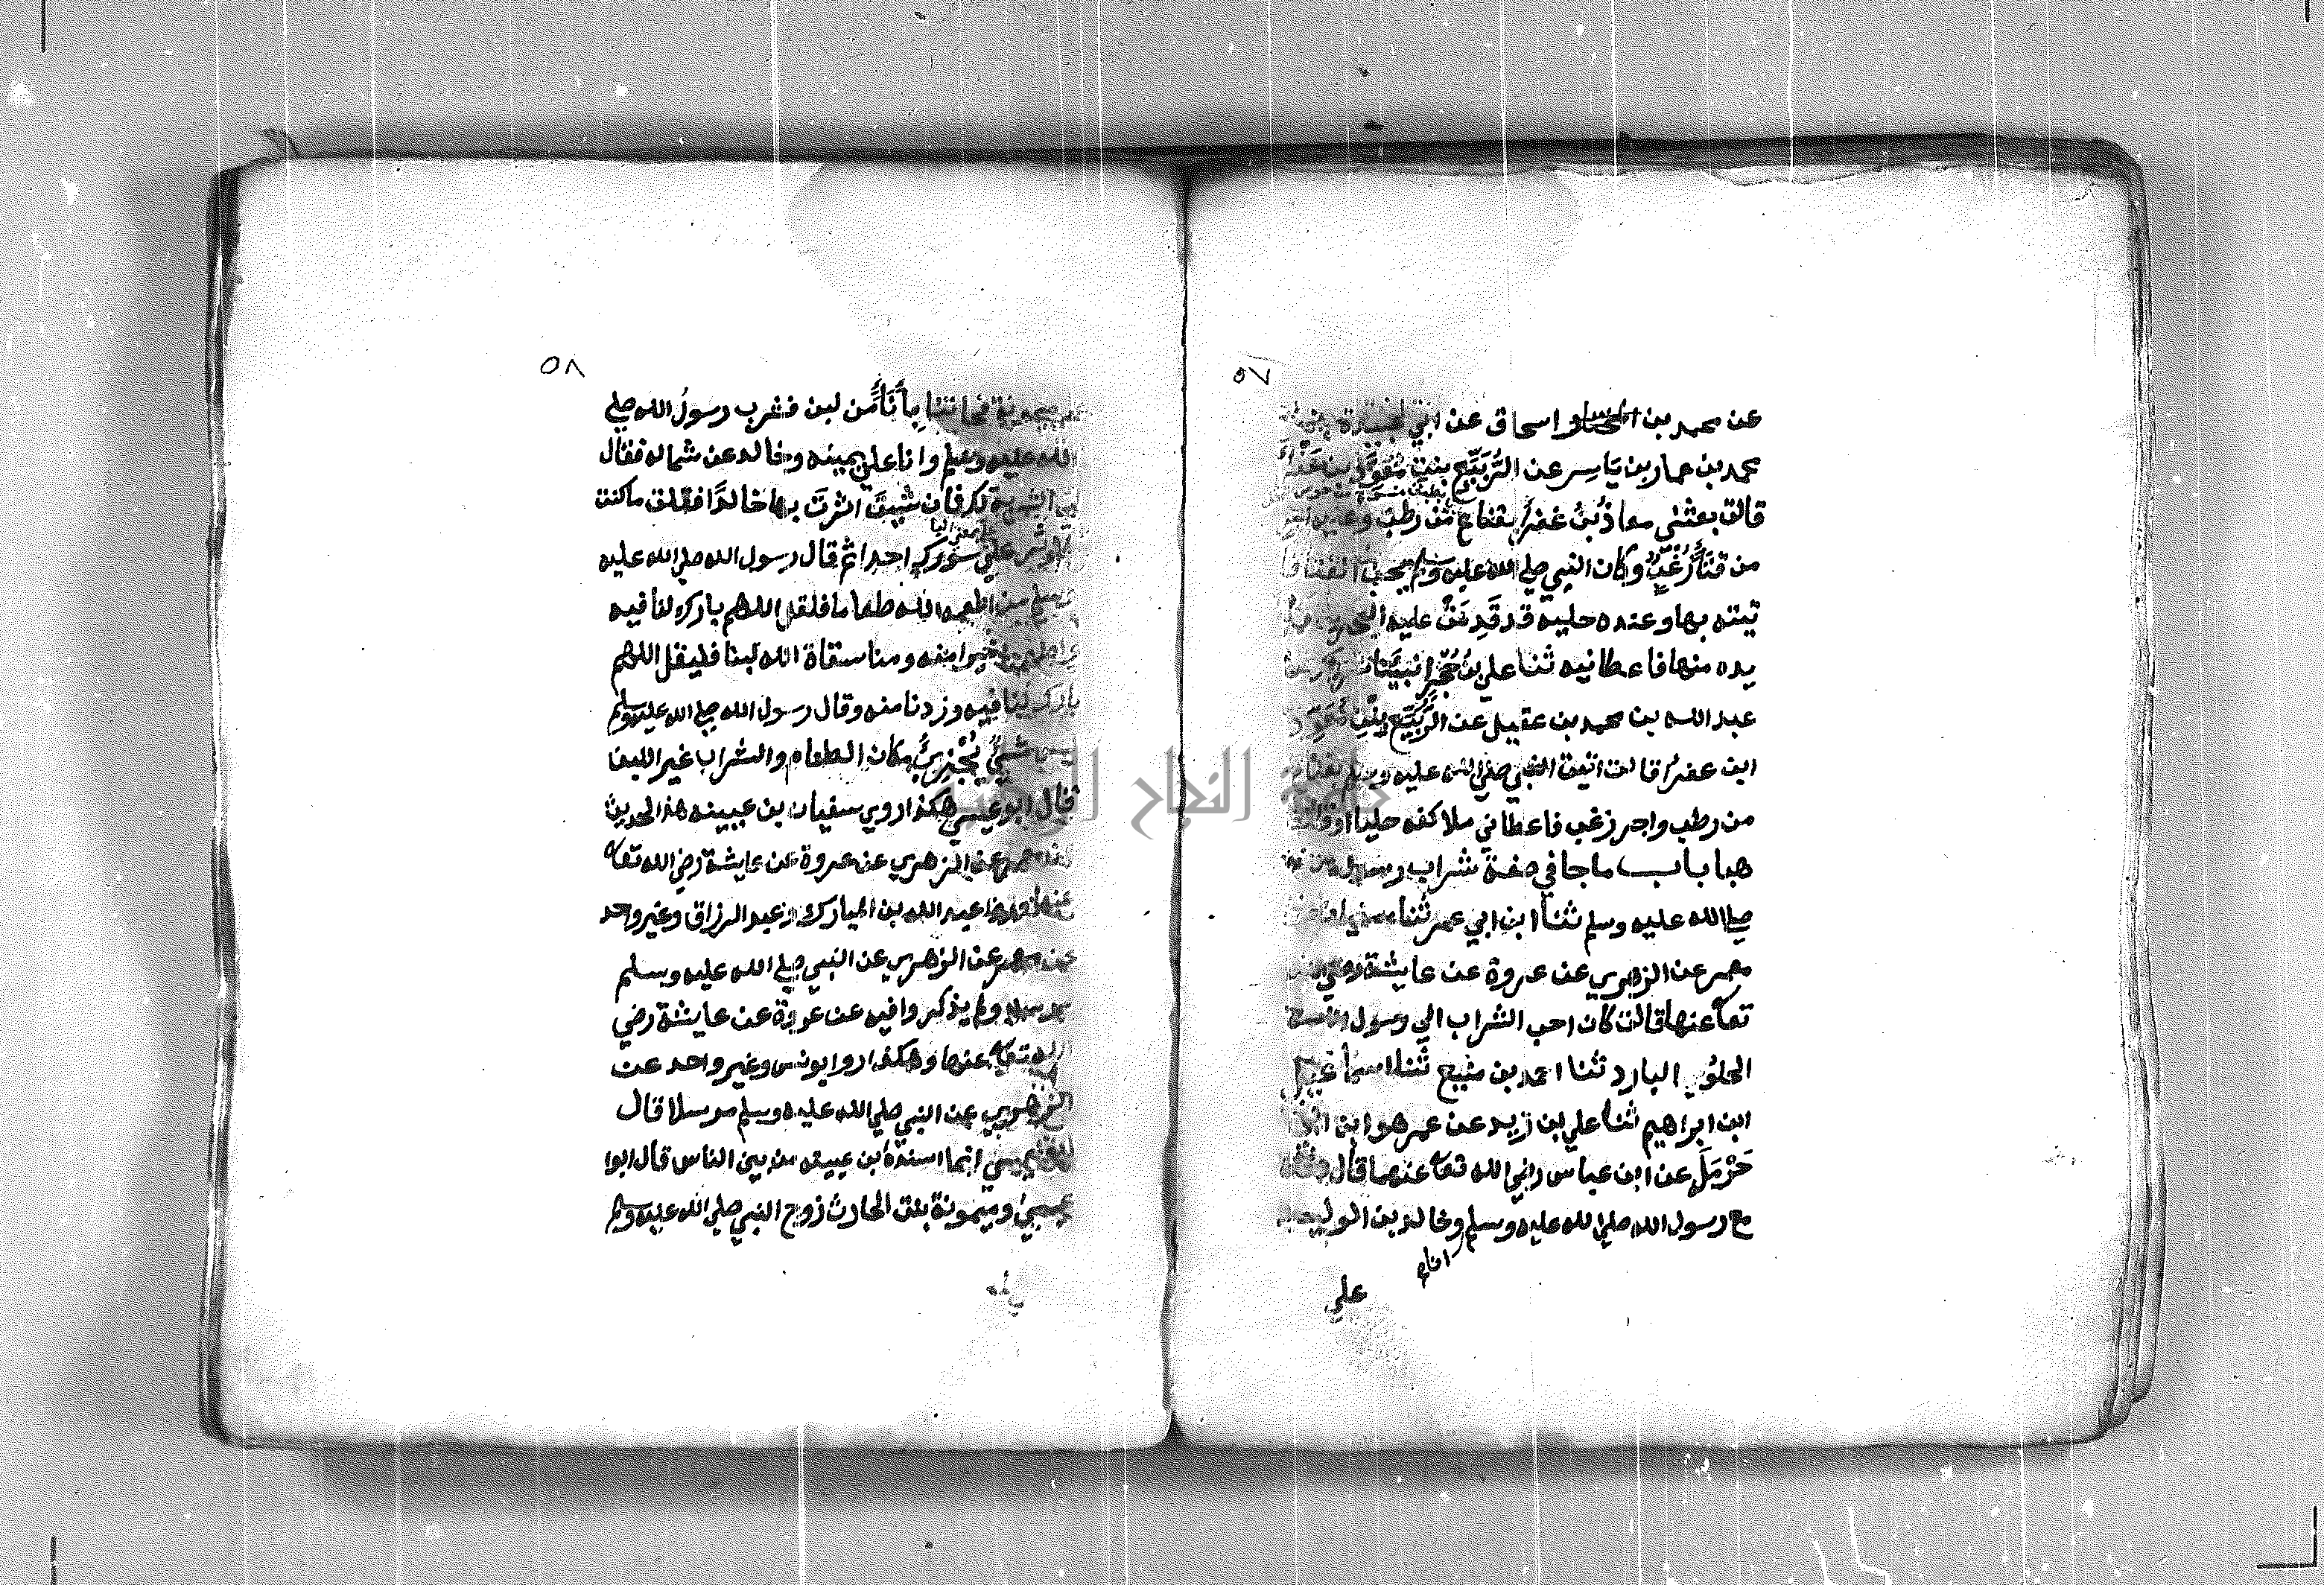 ٥٧
عن محمد بن اسحاق عن ابي عبيدة بن
محمد بن عمار بن يَاسِر عن الرُّبَيِّع بنت مُعَوِّذ بن
قالت بعثني معاذُ بنُ عفرا بقناع من رطب وعليه اجر
من قثَّا زُغْبٍ وكان النبي صلي الله عليه وسلم يحب القثا فا
تيته بها وعنده حلية قد قَدِمَتْ عليه
يده منها فاعطانيه ثنا علي بنُ حُجْرٍ انبئنا
عبد الله بن محمد بن عقيل عن الرُّبَيِّع بِنْتِ مُعَوِّذ
ابن عفرا قالت اتيت النبي صلي الله عليه وسلم بقناع
من رطب واجر زغب فاعطاني ملا كفه حليا او قالت
هبا باب ما جا في صفة شراب رسول
صلي الله عليه وسلم ثنا ابن ابي عمر ثنا سفيان
معمر عن الزهري عن عروة عن عايشة رضي الله
تعا عنها قالت كان احب الشراب الي رسول
الحلو البارد ثنا احمد بن منيع ثنا اسماعيل
ابن ابراهيم ثنا علي بن زيد عن عمر هو ابن
حَرْمَلَ عن ابن عباس رضي الله تعا عنهما قال
مع رسول الله صلي الله عليه وسلم وخالد بن الوليد
علي
٥٨
ميمونة فجاتنا بِأنَاءٍ من لبن فشرب رسولُ الله صلي
الله عليه وسلم وانا علي يمينه وخالد عن شماله فقال
الشربة لك فان شيتَ اثرتَ بها خالدًا فقلت ماكنت
علي سورك احدا ثم قال رسول الله صلي الله عليه
وسلم من اطعمه الله طعاما فلقل اللهم بارك لنا فيه
واطعمنا خيرا منه ومنا سقاة الله لبنا فليقل اللهم
بارك لنا فيه وزدنا منه وقال رسول الله صلي الله عليه وسلم
شيٌ يُجْزِيُ مكان الطعام والشراب غير اللبن
قال ابو عيسي هكذا روي سفيان بن عيينه هذا الحديث
عن معمر عن الزهري عن عروة عن عايشة رضي الله تعا
عنها ورواه عبد الله بن المبارك وعبد الرزاق وغير واحد
عن معمر عن الزهري عن النبي صلي الله عليه وسلم
مرسلا ولم يذكروا فيه عن عروة عن عايشة رضي
الله تعا عنها وهكذا روا يونس وغير واحد عن
الزهري عن النبي صلي الله عليه وسلم مرسلا قال
انما اسندهُ بن عيينه من بين الناس قال ابوا
عيسي وميمونة بنت الحارث زوج النبي صلي الله عليه وسلم